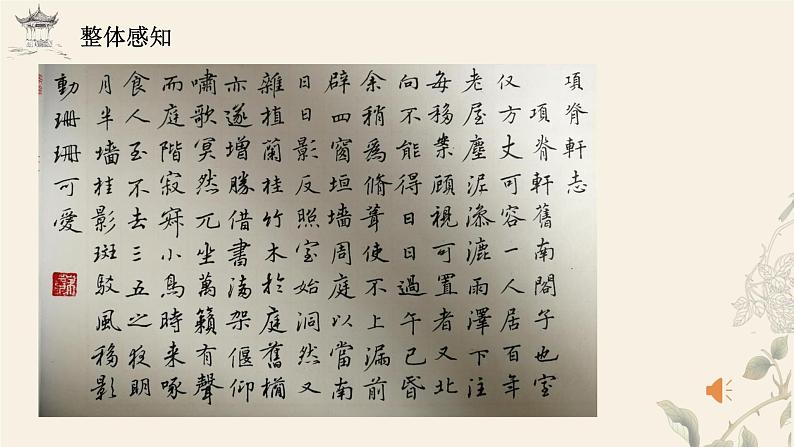 整体感知
項脊軒志
項脊軒舊南閣子也室
仅方丈可容一人居百年
老屋塵泥滲漉雨澤下注
每移案顧視可置者又北
向不能得日日過午已昏
余稍爲脩葺使不上漏前
辟四窗垣墙周庭以當南
日日影反照室始洞然又
雜植蘭桂竹木於庭舊楯
亦遂增勝借書满架偃仰
嘯歌冥然兀坐萬籟有聲
而庭階寂寂小鳥時来啄
食人至不去三五之夜明
月半墙桂影斑駁風移影
動珊珊可愛